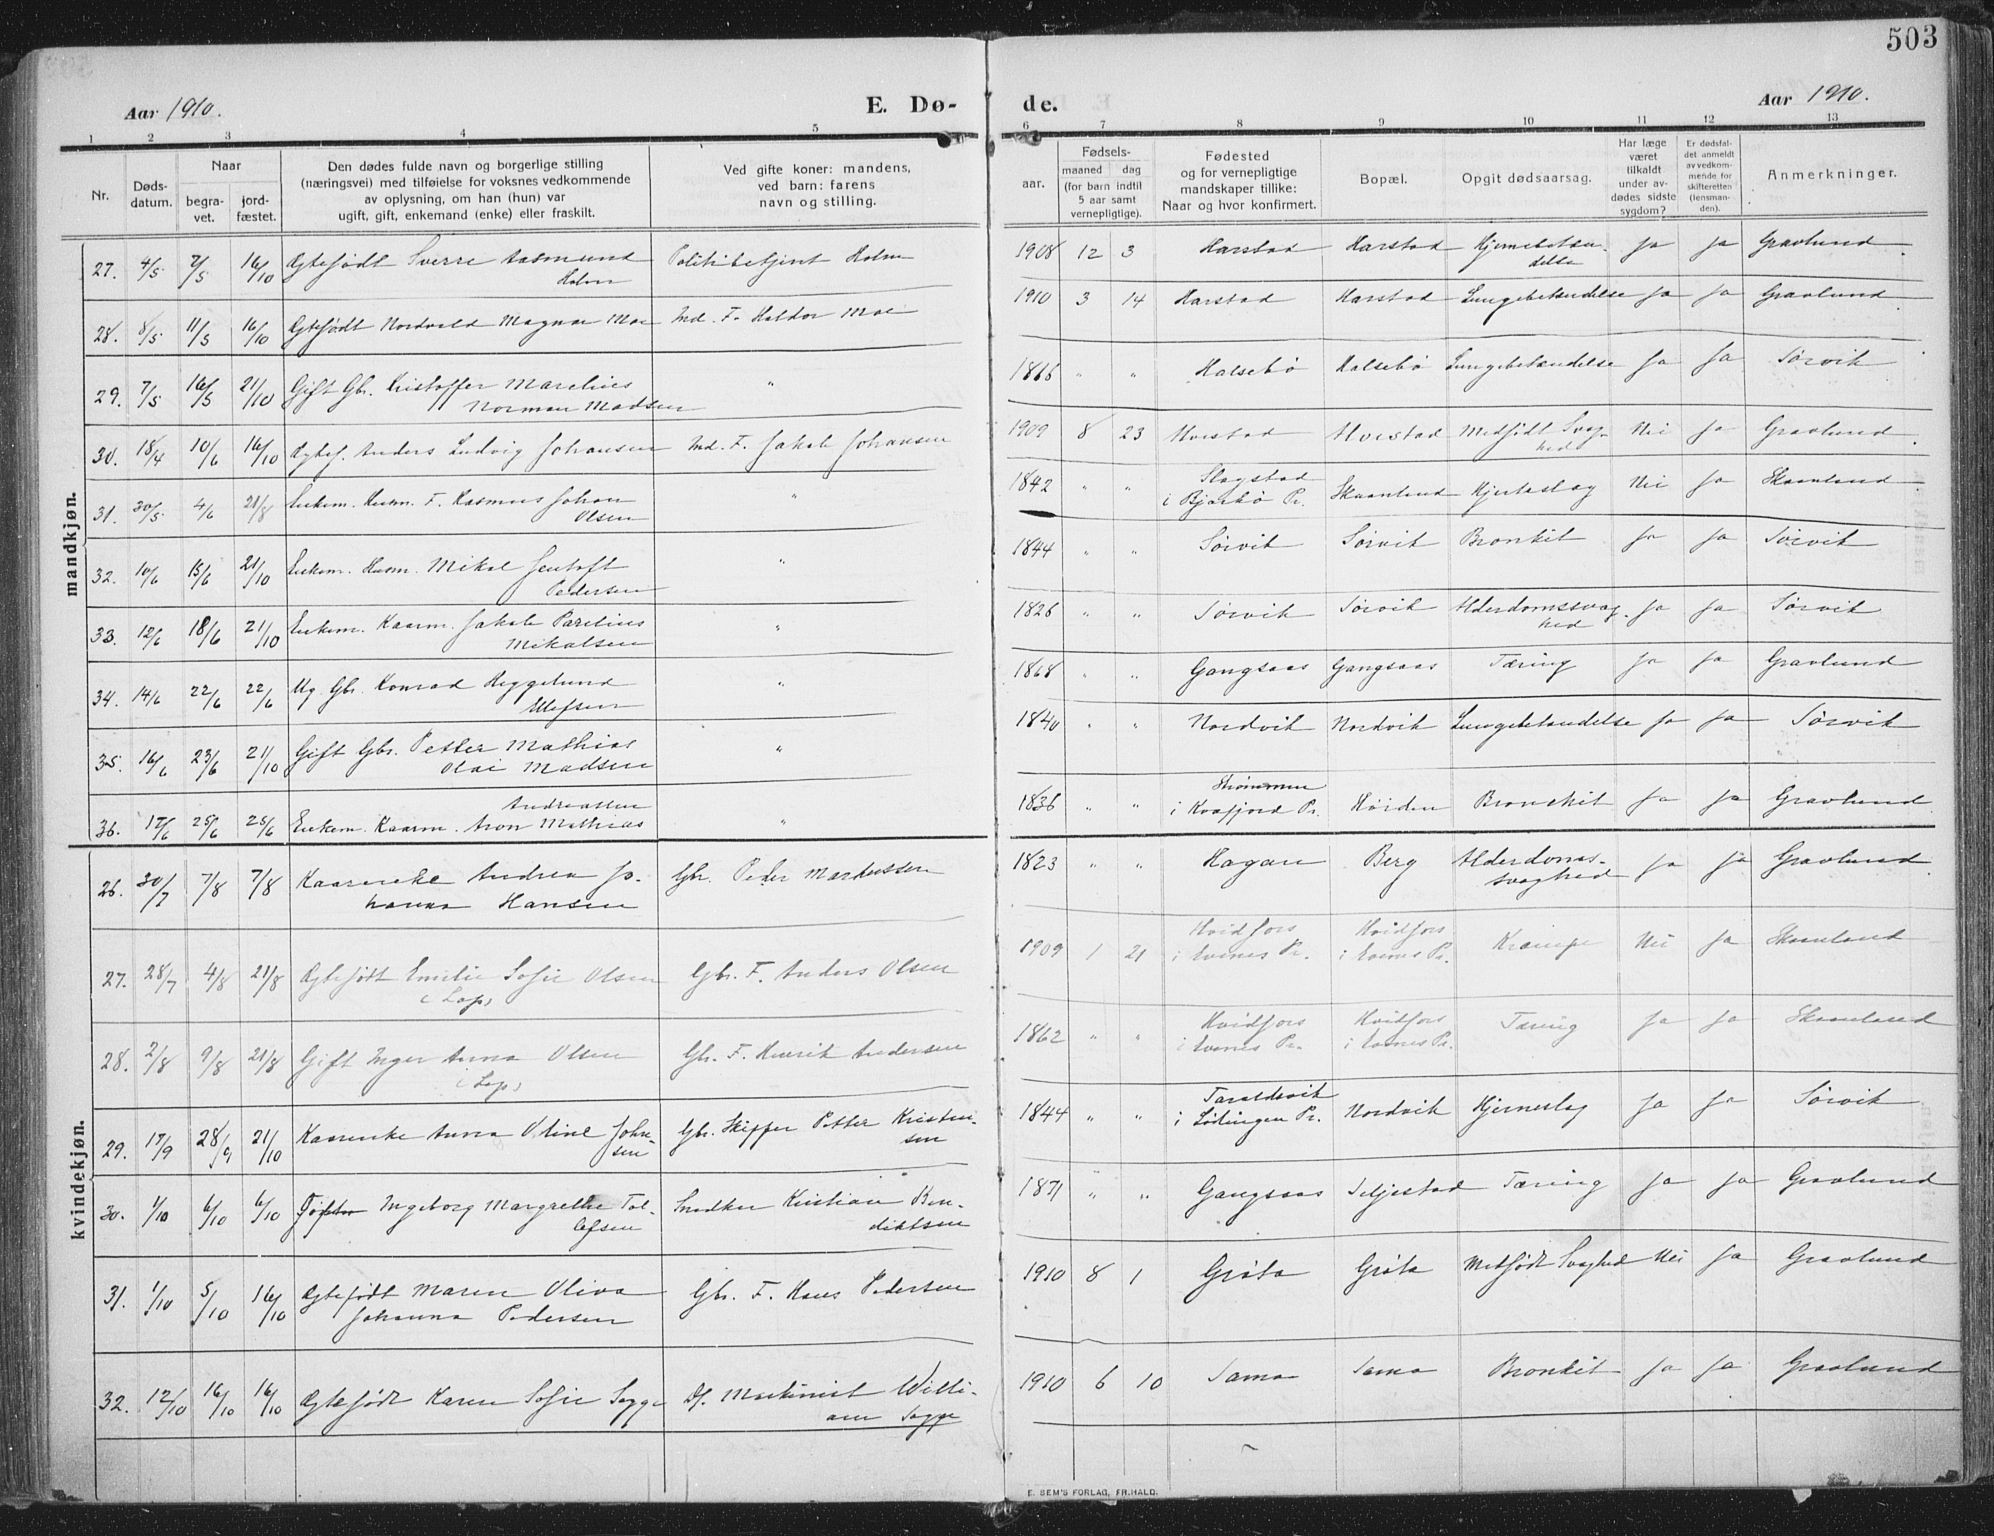 503
Aar 1910.
E. Dø- de.
Aar 1910.
1 2 3 4 5 6 7 8 9 10 11 12 13
Nr.
Døds-
datum.
Naar
begra-
vet.
jord-
fæstet.
Den dødes fulde navn og borgerlige stilling
(næringsvei) med tilføielse for voksnes vedkommende
av oplysning, om han (hun) var
ugift, gift, enkemand (enke) eller fraskilt.
Ved gifte koner: mandens,
ved barn: farens
navn og stilling.
Fødsels-
aar.
maaned dag
(for barn indtil
5 aar samt
vernepligtige).
Fødested
og for vernepligtige
mandskaper tillike:
Naar og hvor konfirmert.
Bopæl.
Opgit dødsaarsag.
Har læge
været
tilkaldt
under av-
dødes sidste
sygdom?
Er dødsfal-
det anmeldt
av vedkom-
mende for
skifteretten
(lensman-
den).
Anmerkninger.
mandkjøn.
27. 4/5 7/5 16/10 Ægtefødt Sverre Aasmund Politibetjent Holm 1908 12 3 Harstad Harstad Hjernebetæn- Ja Ja Gravlund
Holm
delse
28. 8/5 11/5 16/10 Ægtefødt Nordvald Magnar Moe Ind. F. Haldor Moe 1910 3 14 Harstad Harstad Lungebetændelse Ja Ja Gravlund
29. 7/5 16/5 21/10 Gift Gbr. Kristoffer Marelius " 1866 " " Halsebø Halsebø Lungebetændelse Ja Ja Sørvik
Norman Madsen
30. 18/4 10/6 16/10 Ægtef. Anders Ludvig Johansen Ind. F. Jakob Johansen 1909 8 23 Horstad Horstad Medfødt Svag- Nei Ja Gravlund
hed
31. 30/5 4/6 21/8 Enkem. Husm. F. Rasmus Johan " 1842 " " Slagstad Skaanland Hjerteslag Nei Ja Skaanland
Olsen
i Bjarkø Pr.
32. 10/6 15/6 21/10 Enkem. Husm. Mikal Jentoft " 1844 " " Sørvik Sørvik Bronkit Ja Ja Sørvik
Pedersen
33. 12/6 18/6 21/10 Enkem. Kaarm. Jakob Parelius " 1826 " " Sørvik Sørvik Alderdomssvag- Ja Ja Sørvik
Mikalsen
hed
34. 14/6 22/6 22/6 Ug. Gbr. Konrad Heggelund " 1868 " " Gangsaas Gangsaas Tæring Ja Ja Gravlund
Ellefsen
35. 16/6 23/6 21/10 Gift Gbr. Petter Mathias " 1840 " " Nordvik Nordvik Lungebetændelse Ja Ja Sørvik
Olai Madsen
Andreassen
Strømmen
36. 17/6 25/6 25/6 Enkem. Kaarm. Aron Mathias " 1836 " " i Kvæfjord Pr. Bronchit Ja Ja Gravlund
kvindekjøn.
26. 30/7 7/8 7/8 Kaarenke Andrea Jo- Gbr. Peder Markussen 1823 " " Hagan Berg Alderdoms- Ja Ja Gravlund
hanna Hansen
svaghed
27. 28/7 4/8 21/8 Ægtefødt Emilie Sofie Olsen Gbr. F. Anders Olsen 1909 1 21 Hvidfors Hvidfors Krampe Nei Ja Skaanland
(Lap)
i Evenes Pr. i Evenes Pr.
28. 2/8 9/8 21/8 Gift Inger Anna Olsen Gbr. F. Henrik Andersen 1862 " " Hvidfors Hvidfors Tæring Ja Ja Skaanland
(Lap)
i Evenes Pr. i Evenes Pr.
29. 17/9 28/9 21/10 Kaarenke Anna Oline John- Gbr. Skipper Petter Kristen- 1844 " " Taraldsvik Nordvik Hjerneslag Ja Ja Sørvik
sen
sen
i Lødingen Pr.
30. 1/10 6/10 6/10 Ingeborg Margrethe Tol- Snedker Kristian Ben- 1871 " " Gangsaas Seljestad Tæring Ja Ja Gravlund
lefsen
diktsen
31. 1/10 5/10 16/10 Ægtefødt Maren Oliva Gbr. F. Hans Pedersen 1910 8 1 Grøta Grøta Medfødt Svaghed Nei Ja Gravlund
Johanna Pedersen
32. 12/10 16/10 16/10 Ægtefødt Karen Sofie Sagge Df. Maskinist Willi- 1910 6 10 Sama Sama Bronkit Ja Ja Gravlund
am Sagge
E. SEM'S FORLAG, FR.HALD.